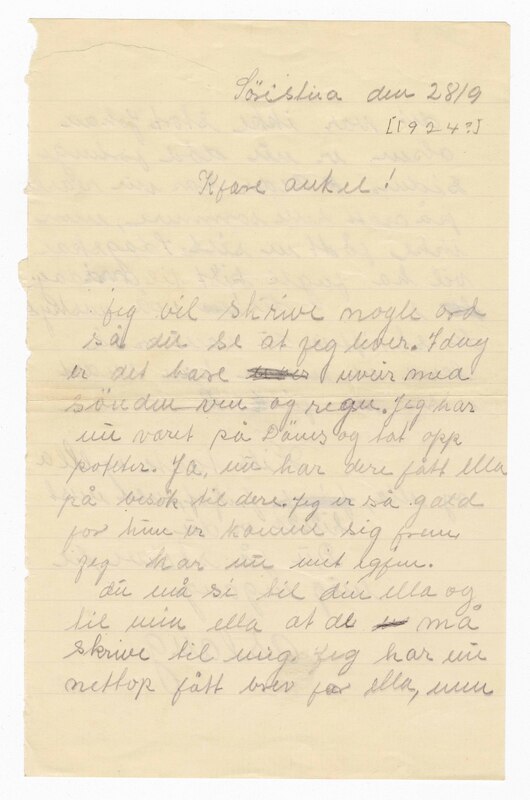 den 28/9
[1924?]
Kjære onkel!
jeg vil skrive nogle ord
så du se at jeg lever. Idag
er det bare uveir med
sönden vin og regn. Jeg har
nu været på Döns og tat opp
poteter. Ja, nu har dere fått ella
på besök til dere. Jeg er så gald
for hun er komme sig frem
jeg har nu mit igjen.
du må si til din ella og
til min ella at de må
skrive til mig. Jeg har nu
nettop fått brev fra ella, men